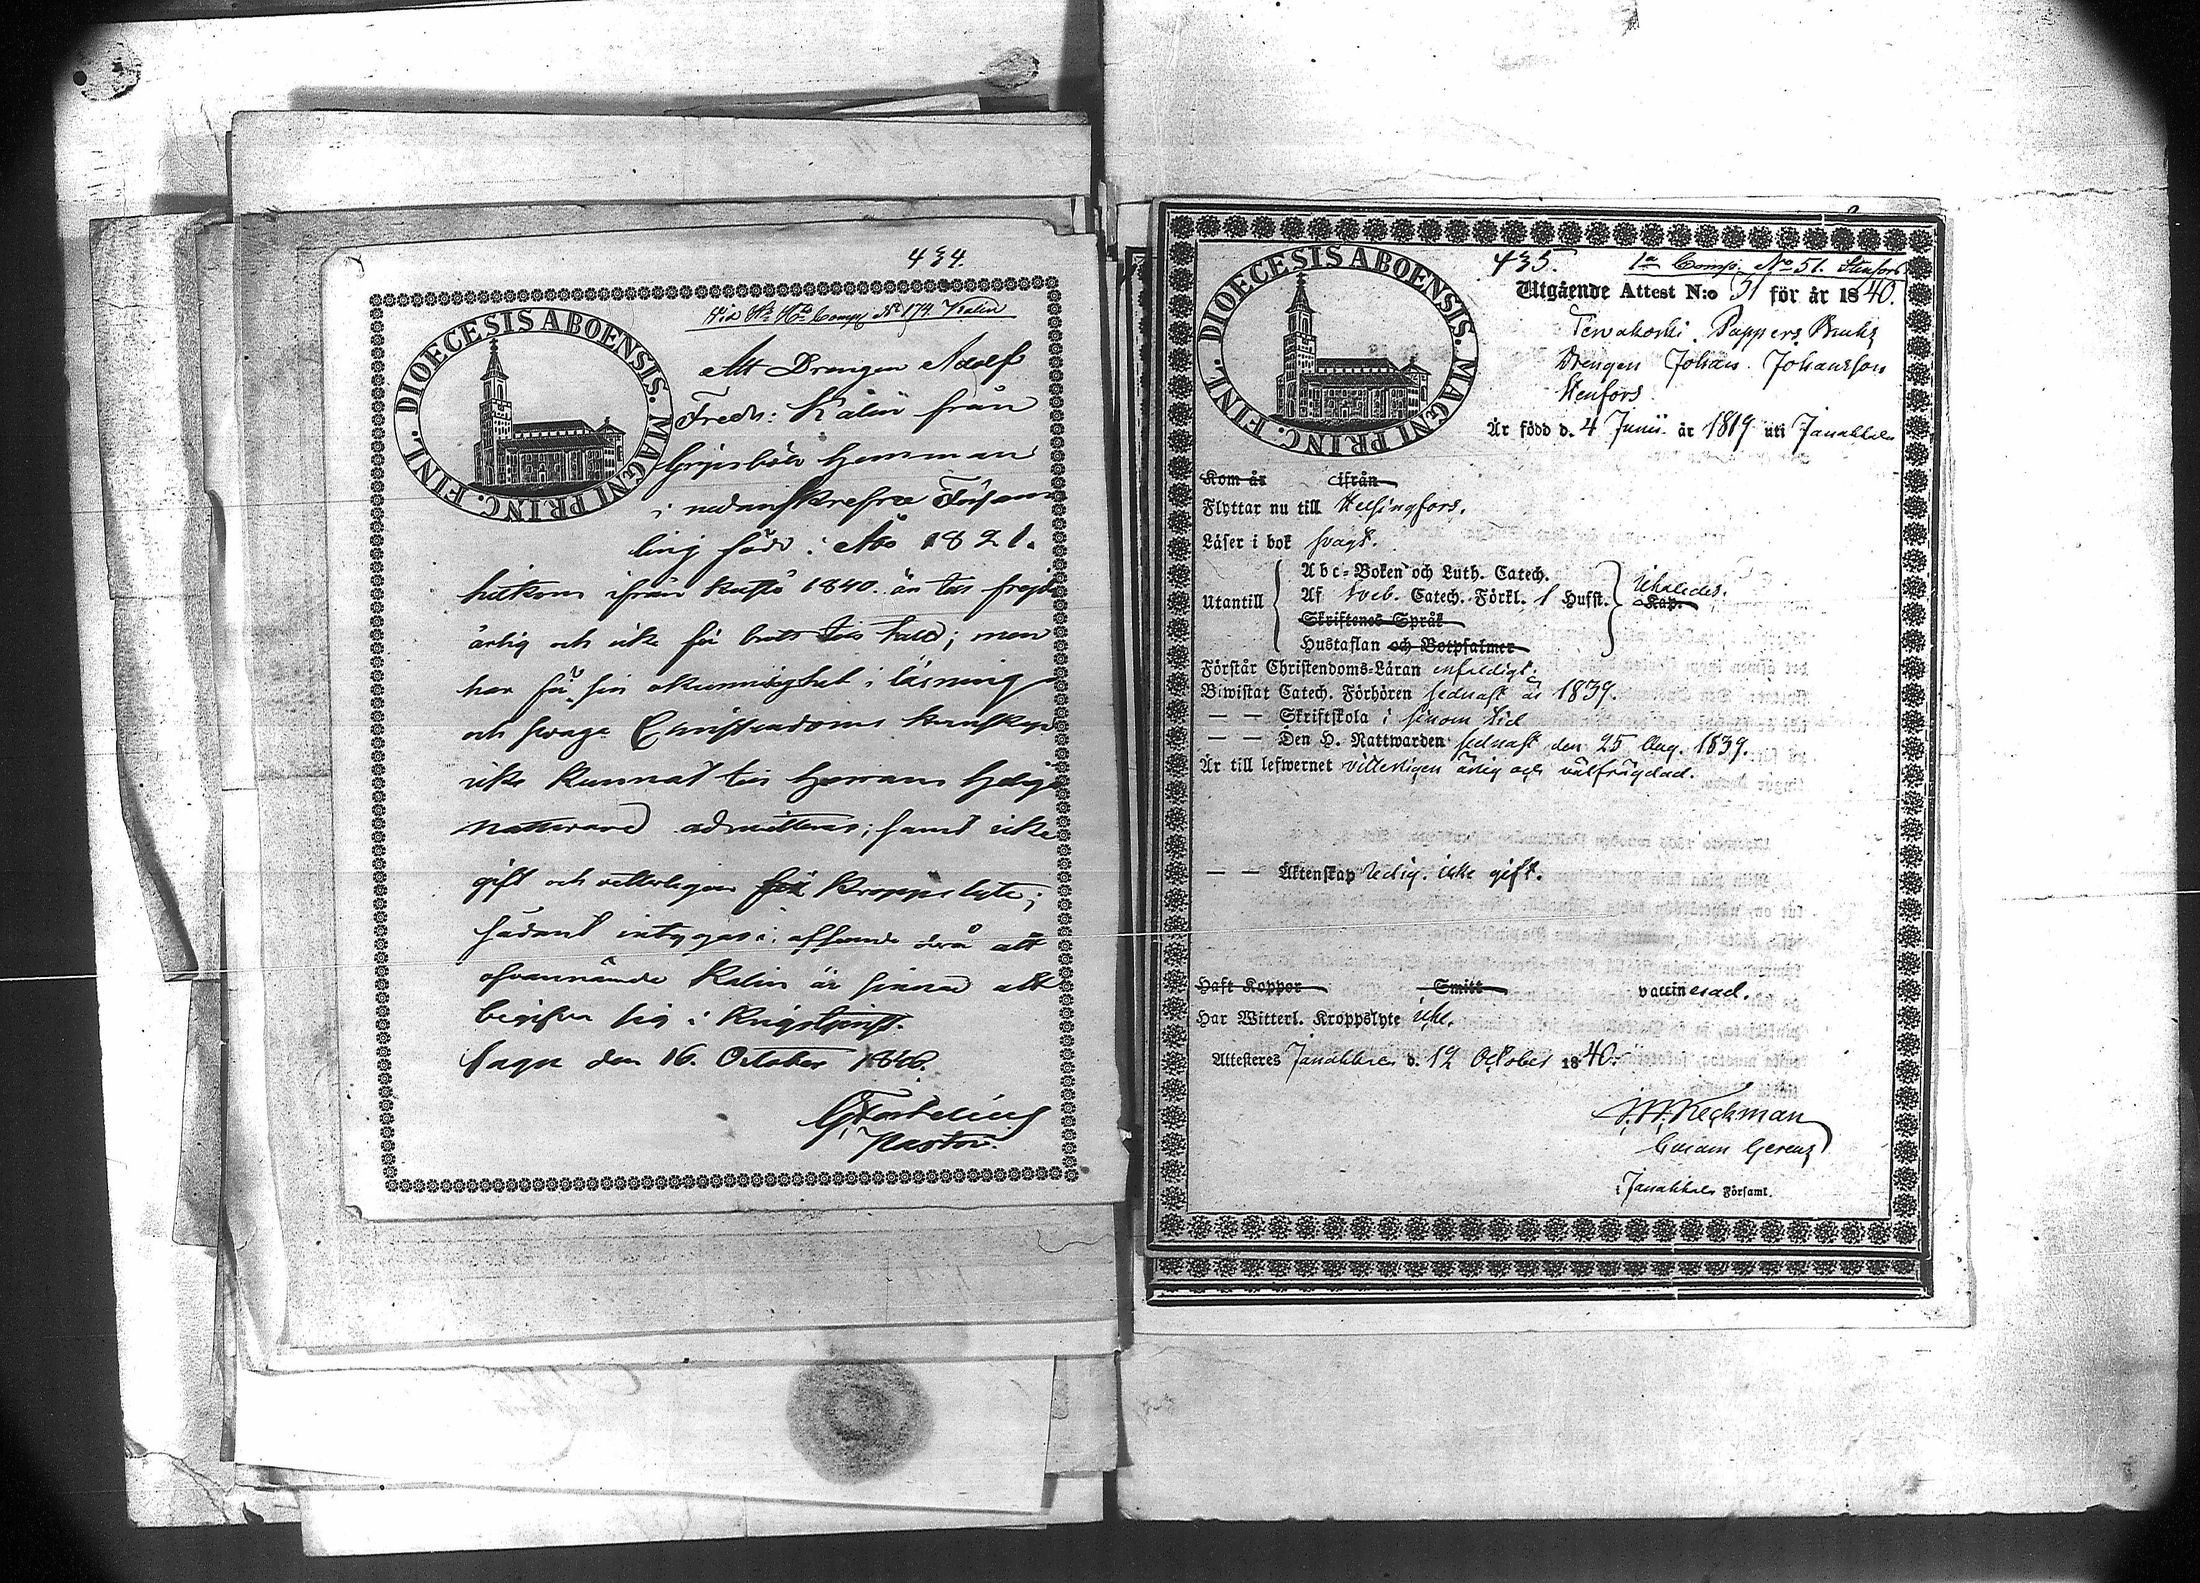 434.
Wid Comp. No 174 Kalin
DIOECESIS ABOENSIS. MAGNI PRINC. FINL.
Att Drengen Adolf
Fredr: Kalin från
hemman
i nedanskrefne Församl
ling född i Åbo 1821.
hitkom ifrån Kustö 1840. är till frejden
ärlig och icke för brott till talad; men
har för sin okunnighet i läsning
och svaga Christendoms kunskap
icke kunnat till Herrans Helga
Nattvard admitteras; samt icke
gift och vetterligen Kroppslyte;
sådant intygas i afseende derå att
ofvannämnde Kalin är sinnad att
begifva sig i Krigstjenst.
Sagu den 16. October 1840.
Pastor.
435. 1a Comp. No 51. Stenfors
Utgående Attest N:o 51 för år 1840.
Terwakoski Pappers Bruks
Drengen Johan Johansson
Stenfors
Är född d. 4 Junii år 1819 uti Janakkala
DIOECESIS ABOENSIS. MAGNI PRINC. FINL.
Kom år ifrån
Flyttar nu till Helsingfors.
Läser i bok svagt.
Utantill
Abc-Boken och Luth. Catech.
Af Sveb. Catech. Förkl. 1 Hufst. Kap.
Skriftenes Språk
Hustaflan och Botpsalmer
Förstår Christendoms-Läran enfaldigt.
Biwistat Catech. Förhören sednast år 1839.
— — Skriftskola i sinom tid
— — Den H. Nattwarden sednast den 25 Aug. 1839.
Är till lefwernet vitterligen ärlig och välfrägdad.
— — Äktenskap ledig. icke gift.
Haft Koppor Smitt vaccinerad.
Har Witterl. Kroppslyte icke.
Attesteres Janakkala d. 12 October 1840.
Heckman
i Janakkala Församl.